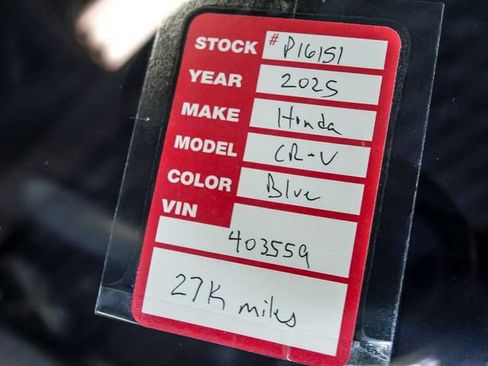 STOCK # P16151
YEAR 2025
MAKE Honda
MODEL CR-V
COLOR Blue
VIN
403559
27K miles